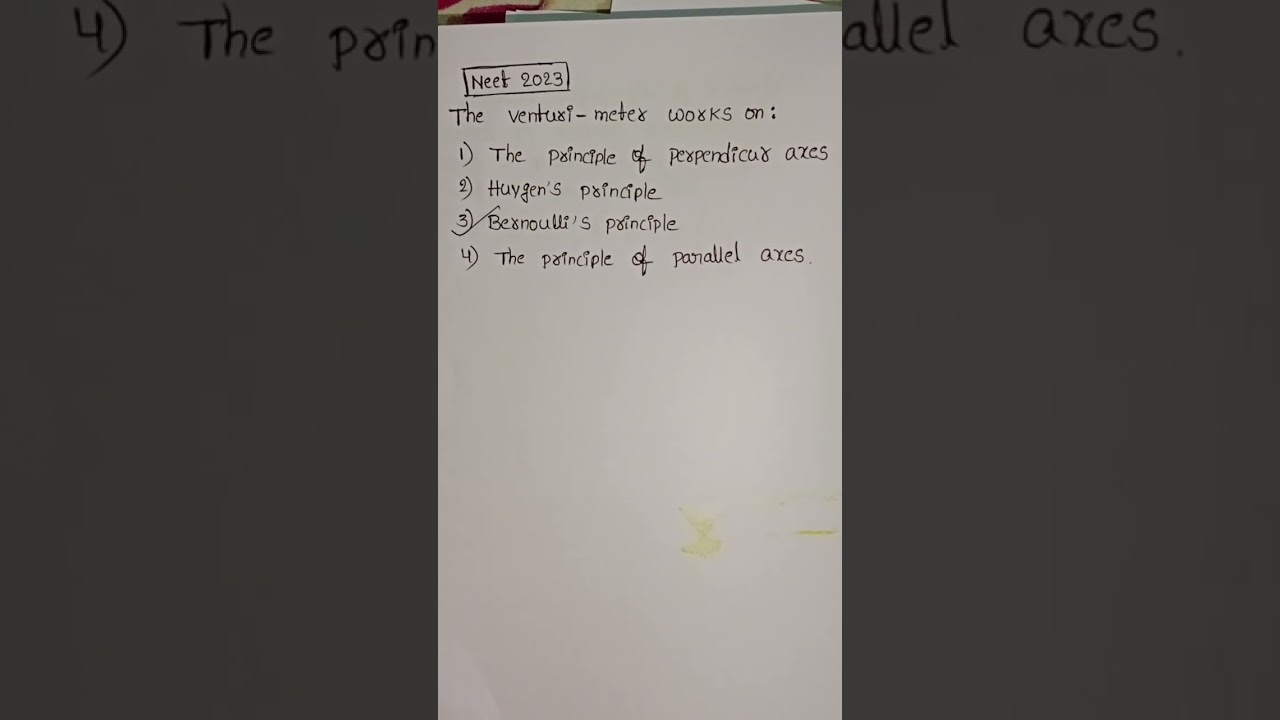 4) The prin
allel axes.
Neet 2023
The venturi-meter works on:
1) The principle of perpendicur axes
2) Huygen's principle
3) Bernoulli's principle
4) The principle of parallel axes.